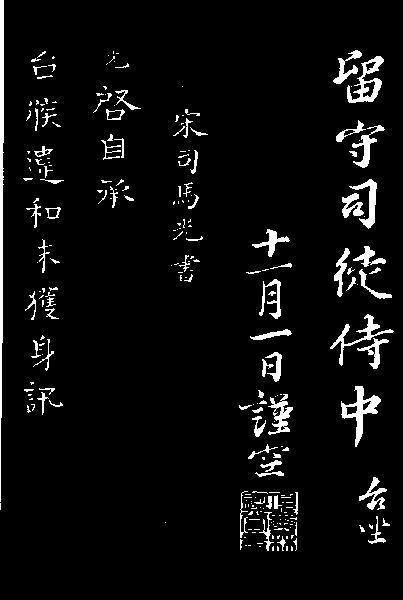 留守司徒侍中 台坐
十一月一日謹空
宋司馬光書
光啓自承
台候違和未獲身訊